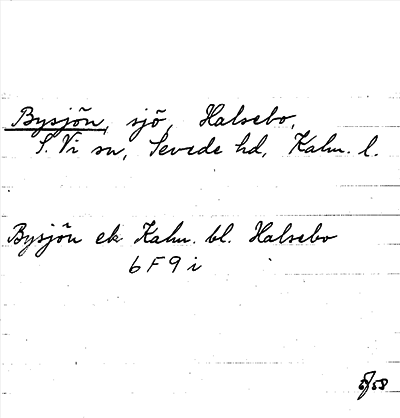 Bysjön, sjö, Halsebo,
S. Vi sn, Sevede hd, Kalm. l.
Bysjön ek Kalm. bl. Halsebo
6 F 9 i